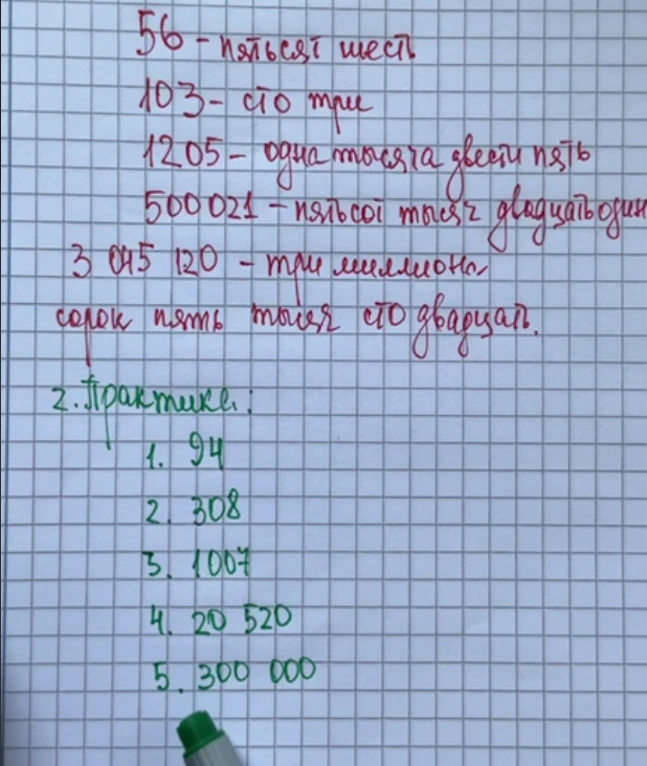 56 - пятьсят шесть
103 - сто три
1205 - одна тысяча двести пять
500 021 - пятьсот тысяч двадцать один
3 045 120 - три миллиона
сорок пять тысяч сто двадцать.
2. Практика:
1. 94
2. 308
3. 1007
4. 20 520
5. 300 000